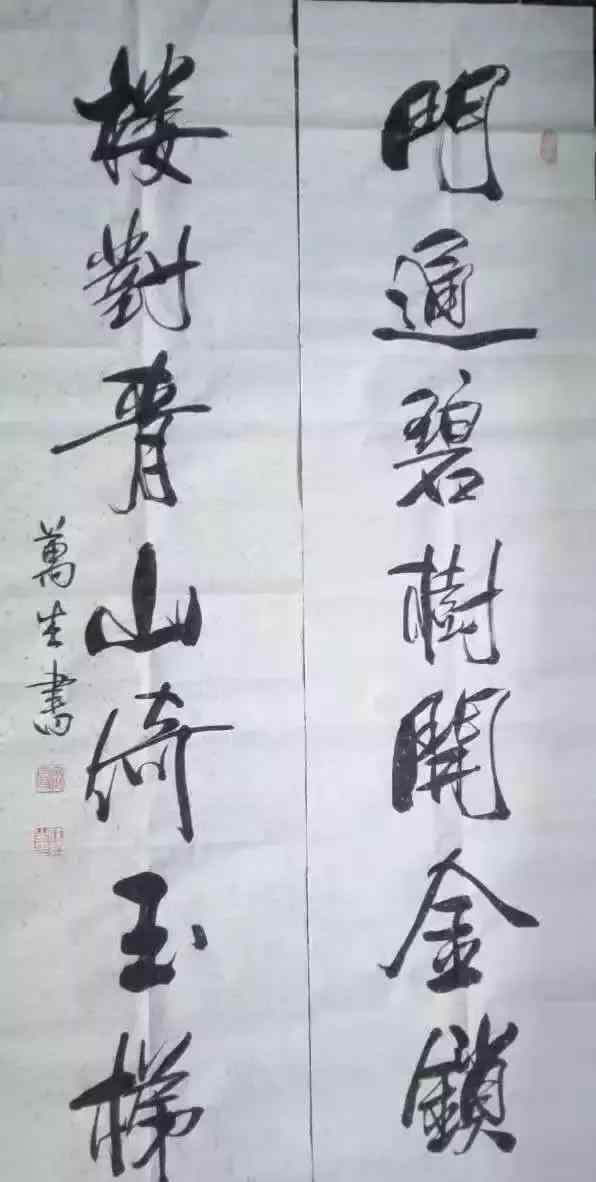 門通碧樹開金鎖
樓對青山綺玉梯
萬生書